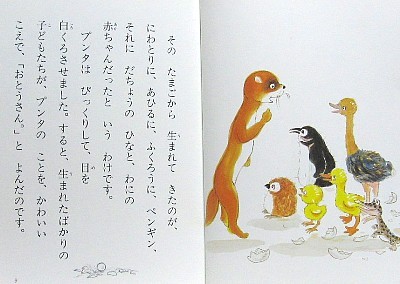 その たまごから 生まれて きたのが、
にわとりに、あひるに、ふくろうに、ペンギン、
それに だちょうの ひなと、わにの
赤ちゃんだったと いう わけです。
ブンタは びっくりして、目を
白くろさせました。すると、生まれたばかりの
子どもたちが、ブンタの ことを、かわいい
こえで、「おとうさん。」と よんだのです。